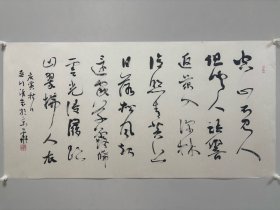 空山不見人
但聞人語響
返景入深林
復照青苔上
日落松風起
還家草露晞
雲光侵履跡
山翠拂人衣
庚寅秋月